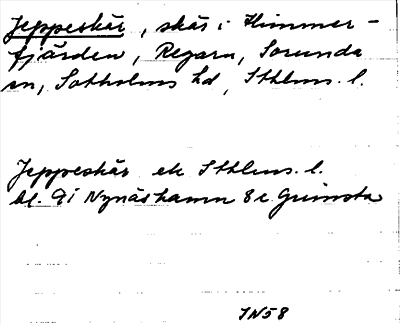 Jeppeskär, skär i Himmer-
fjärden, Regarn, Sorunda
sn, Sotholms hd, Sthlms. l.
Jeppeskär ek Sthlms. l.
bl. 9i Nynäshamn 8e Grimsta
IN58